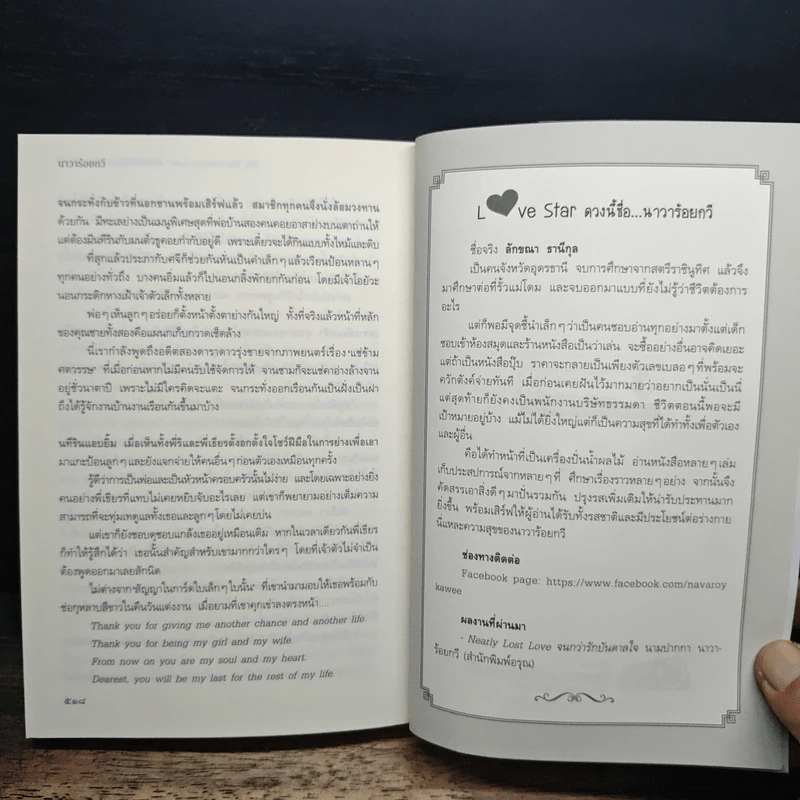 นาวาร้อยกวี
จนกระทั่งกับข้าวที่นอกชานพร้อมเสิร์ฟแล้ว สมาชิกทุกคนจึงนั่งล้อมวงทาน
ด้วยกัน มีทะเลย่างเป็นเมนูพิเศษสุดที่พ่อบ้านสองคนคอยอาสาย่างบนเตาถ่านให้
แต่ต้องมีนทีรินกับมนต์วธูคอยกำกับอยู่ดี เพราะเดี๋ยวจะได้กินแบบทั้งไหม้และดิบ
ที่สุกแล้วประภากับศจีก็ช่วยกันหั่นเป็นคำเล็กๆ แล้วเรียนป้อนหลานๆ
ทุกคนอย่างทั่วถึง บางคนอิ่มแล้วก็ไปนอกลิ้งพักยกกันก่อน โดยมีเจ้าโอยัวะ
นอนกระดิกหางเฝ้าเจ้าตัวเล็กทั้งหลาย
พ่อๆ เห็นลูกๆ อร่อยก็ตั้งหน้าตั้งตาย่างกันใหญ่ ทั้งที่จริงแล้วหน้าที่หลัก
ของคุณชายทั้งสองคือแผนกเก็บกวาดเช็ดล้าง
นี่เรากำลังพูดถึงอดีตสองดาราดาวรุ่งชายจากภาพยนตร์เรื่อง 'แซ่ข้าม
ศตวรรษ' ที่เมื่อก่อนหากไม่มีคนรับใช้จัดการให้ จานชามก็จะแช่คาอ่างล้างจาน
อยู่ชั่วนาตาปี เพราะไม่มีใครคิดจะแตะ จนกระทั่งออกเรือนกันเป็นฝั่งเป็นฝา
ถึงได้รู้จักงานบ้านงานเรือนกันขึ้นมาบ้าง
นทีรินแอบยิ้ม เมื่อเห็นทั้งพี่ริและพี่เธียรตั้งอกตั้งใจโชว์ฝีมือในการย่างเพื่อเอา
มาแกะป้อนลูกๆ และยังแจกจ่ายให้คนอื่นๆ ก่อนตัวเองเหมือนทุกครั้ง
รู้ดีว่าการเป็นพ่อและเป็นหัวหน้าครอบครัวนั้นไม่ง่าย และโดยเฉพาะอย่างยิ่ง
คนอย่างพี่เธียรที่แทบไม่เคยหยิบจับอะไรเลย แต่เขาก็พยายามอย่างเต็มความ
สามารถที่จะทุ่มเทดูแลทั้งเธอและลูกๆ โดยไม่เคยบ่น
แต่เขาก็ยังชอบดุชอบแกล้งเธออยู่เหมือนเดิม หากในเวลาเดียวกันพี่เธียร
ก็ทำให้รู้สึกได้ว่า เธอนั้นสำคัญสำหรับเขามากกว่าใครๆ โดยที่เจ้าตัวไม่จำเป็น
ต้องพูดออกมาเลยสักนิด
ไม่ต่างจาก 'สัญญาในการ์ดใบเล็กๆ ใบนั้น' ที่เขานำมามอบให้เธอพร้อมกับ
ช่อกุหลาบสีขาวในคืนวันแต่งงาน เมื่อยามที่เขาคุกเข่าลงตรงหน้า....
Thank you for giving me another chance and another life.
Thank you for being my girl and my wife.
From now on you are my soul and my heart.
Dearest, you will be my last for the rest of my life.
๕๑๘
L♥ve Star ดวงนี้ชื่อ...นาวาร้อยกวี
ชื่อจริง ลักขณา ธานีกุล
เป็นคนจังหวัดอุดรธานี จบการศึกษาจากสตรีราชินูทิศ แล้วจึง
มาศึกษาต่อที่รั้วแม่โดม และจบออกมาแบบที่ยังไม่รู้ว่าชีวิตต้องการ
อะไร
แต่ก็พอมีจุดชี้นำเล็กๆ ว่าเป็นคนชอบอ่านทุกอย่างมาตั้งแต่เด็ก
ชอบเข้าห้องสมุดและร้านหนังสือเป็นว่าเล่น จะซื้ออย่างอื่นอาจคิดเยอะ
แต่ถ้าเป็นหนังสือปุ๊บ ราคาจะกลายเป็นเพียงตัวเลขเบลอๆ ที่พร้อมจะ
ควักตังค์จ่ายทันที เมื่อก่อนเคยฝันไว้มากมายว่าอยากเป็นนั่นเป็นนี่
แต่สุดท้ายก็ยังคงเป็นพนักงานบริษัทธรรมดา ชีวิตตอนนี้พอจะมี
เป้าหมายอยู่บ้าง แม้ไม่ได้ยิ่งใหญ่แต่ก็เป็นความสุขที่ได้ทำทั้งเพื่อตัวเอง
และผู้อื่น
คือได้ทำหน้าที่เป็นเครื่องปั่นน้ำผลไม้ อ่านหนังสือหลายๆ เล่ม
เก็บประสบการณ์จากหลายๆ ที่ ศึกษาเรื่องราวหลายๆ อย่าง จากนั้นจึง
คัดสรรเอาสิ่งดีๆ มาปั่นรวมกัน ปรุงรสเพิ่มเติมให้น่ารับประทานมาก
ยิ่งขึ้น พร้อมเสิร์ฟให้ผู้อ่านได้รับทั้งรสชาติและมีประโยชน์ต่อร่างกาย
นี่แหละความสุขของนาวาร้อยกวี
ช่องทางติดต่อ
Facebook page: https://www.facebook.com/navaroy
kawee
ผลงานที่ผ่านมา
- Nearly Lost Love จนกว่ารักบันดาลใจ นามปากกา นาวา-
ร้อยกวี (สำนักพิมพ์อรุณ)